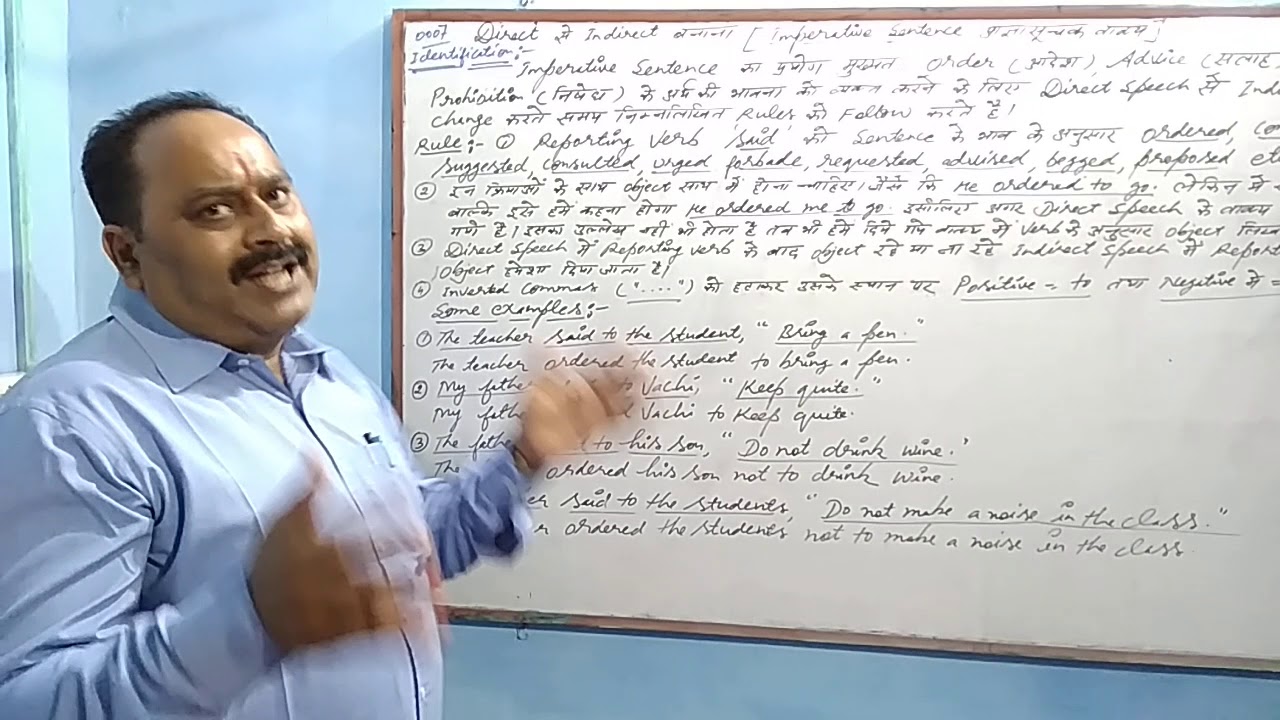 0007 Direct से Indirect बनाना [Imperative Sentence आज्ञासूचक वाक्य]
Identification:-
Imperative Sentence का प्रयोग मुख्यतः Order (आदेश), Advice (सलाह
Prohibition (निषेध) के अर्थ की भावना को व्यक्त करने के लिए Direct Speech से Indi
change करते समय निम्नलिखित 'Rules' को Follow करते है।
Rule:- ① Reporting Verb 'said' को Sentence के भाव के अनुसार ordered, co
suggested, consulted, urged forbade, requested, advised, begged, proposed et
② इन क्रियाओं के साथ object साथ में होना चाहिए। जैसे कि He ordered to go. लेकिन में
बल्कि इसे हमें कहना होगा He ordered me to go. इसीलिए अगर Direct Speech के वाक्य
गये है। इसका उल्लेख नहीं भी होता है तब भी हमें दिये गये वाक्य में Verb के अनुसार object
③ Direct Speech में Reporting verb के बाद object रहे या ना रहे Indirect Speech में Repor
object हमेशा दिया जाता है।
④ Inverted Commas ("....") को हटाकर उसके स्थान पर Positive = to तथा Negitive में =
Some examples:-
① The teacher said to the student, "Bring a pen."
The teacher ordered the student to bring a pen.
② My father to Vachi, "Keep quite."
My Vachi to Keep quite.
③ The to his son, "Do not drink wine.'
The ordered his son not to drink wine.
said to the students, "Do not make a noise in the class."
ordered the students not to make a noise in the class.